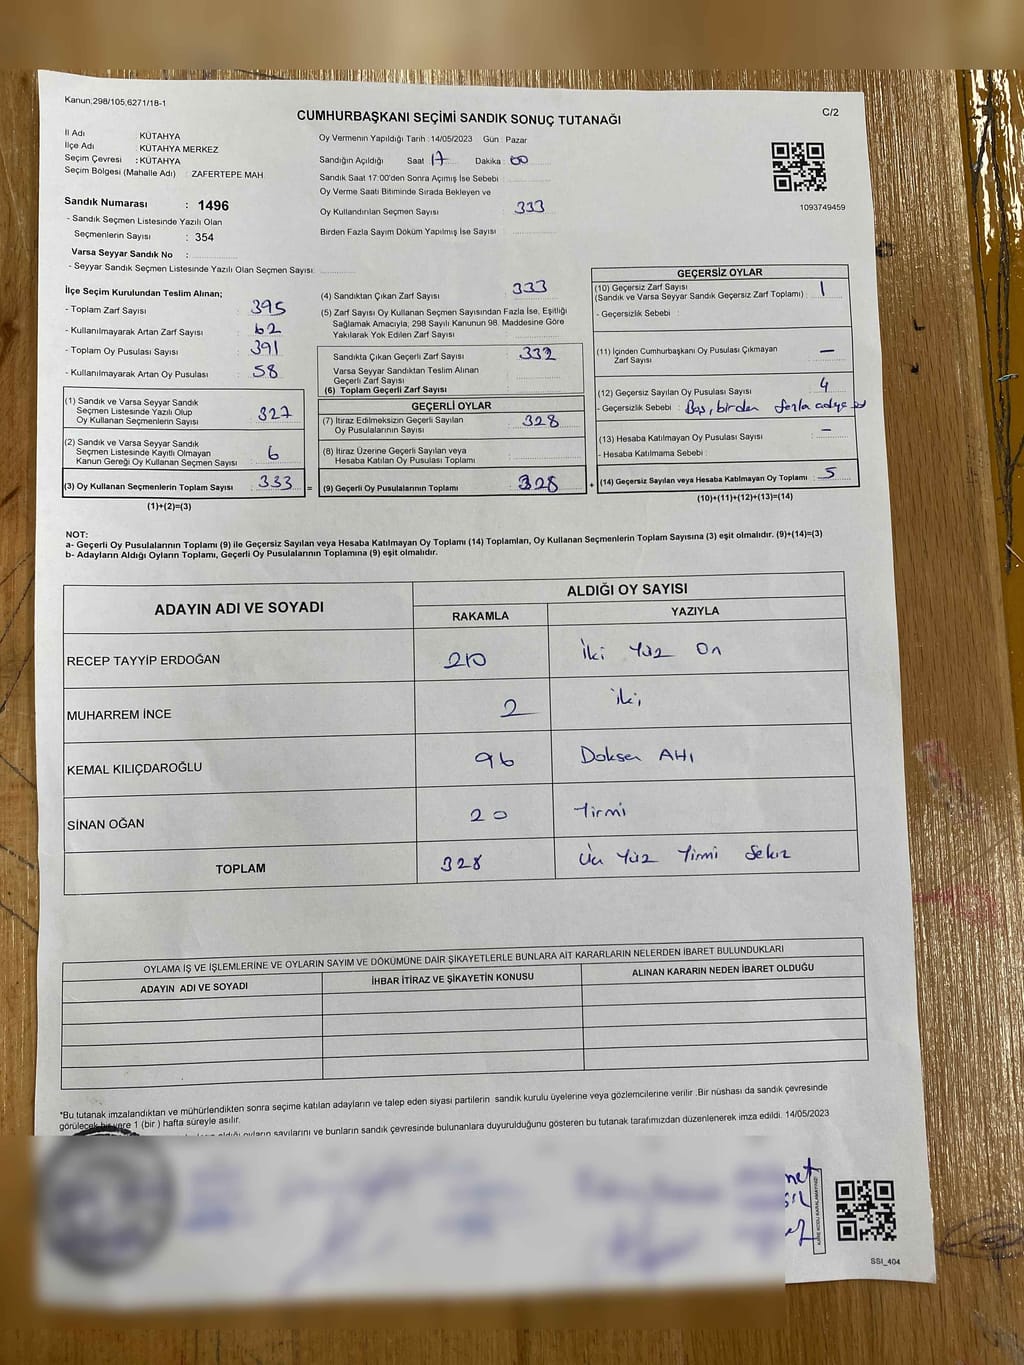 Kanun;298/105,6271/18-1
C/2
CUMHURBAŞKANI SEÇİMİ SANDIK SONUÇ TUTANAĞI
İl Adı : KÜTAHYA
İlçe Adı : KÜTAHYA MERKEZ
Seçim Çevresi : KÜTAHYA
Seçim Bölgesi (Mahalle Adı) : ZAFERTEPE MAH.
Sandık Numarası : 1496
- Sandık Seçmen Listesinde Yazılı Olan
Seçmenlerin Sayısı : 354
Varsa Seyyar Sandık No :
- Seyyar Sandık Seçmen Listesinde Yazılı Olan Seçmen Sayısı:
Oy Vermenin Yapıldığı Tarih : 14/05/2023 Gün : Pazar
Sandığın Açıldığı Saat 17 Dakika : 00
Sandık Saat 17:00'den Sonra Açımış İse Sebebi :
Oy Verme Saati Bitiminde Sırada Bekleyen ve
Oy Kullandırılan Seçmen Sayısı : 333
Birden Fazla Sayım Döküm Yapılmış İse Sayısı :
1093749459
İlçe Seçim Kurulundan Teslim Alınan;
- Toplam Zarf Sayısı : 395
- Kullanılmayarak Artan Zarf Sayısı : 62
- Toplam Oy Pusulası Sayısı : 391
- Kullanılmayarak Artan Oy Pusulası : 58
(1) Sandık ve Varsa Seyyar Sandık
Seçmen Listesinde Yazılı Olup
Oy Kullanan Seçmenlerin Sayısı : 327
(2) Sandık ve Varsa Seyyar Sandık
Seçmen Listesinde Kayıtlı Olmayan
Kanun Gereği Oy Kullanan Seçmen Sayısı : 6
(3) Oy Kullanan Seçmenlerin Toplam Sayısı : 333
(1)+(2)=(3)
(4) Sandıktan Çıkan Zarf Sayısı : 333
(5) Zarf Sayısı Oy Kullanan Seçmen Sayısından Fazla İse, Eşitliği
Sağlamak Amacıyla, 298 Sayılı Kanunun 98. Maddesine Göre
Yakılarak Yok Edilen Zarf Sayısı :
Sandıkta Çıkan Geçerli Zarf Sayısı : 332
Varsa Seyyar Sandıktan Teslim Alınan
Geçerli Zarf Sayısı :
(6) Toplam Geçerli Zarf Sayısı :
GEÇERLİ OYLAR
(7) İtiraz Edilmeksizin Geçerli Sayılan
Oy Pusulalarının Sayısı : 328
(8) İtiraz Üzerine Geçerli Sayılan veya
Hesaba Katılan Oy Pusulası Toplamı :
= (9) Geçerli Oy Pusulalarının Toplamı : 328 +
GEÇERSİZ OYLAR
(10) Geçersiz Zarf Sayısı
(Sandık ve Varsa Seyyar Sandık Geçersiz Zarf Toplamı) : 1
- Geçersizlik Sebebi :
(11) İçinden Cumhurbaşkanı Oy Pusulası Çıkmayan
Zarf Sayısı : —
(12) Geçersiz Sayılan Oy Pusulası Sayısı : 4
- Geçersizlik Sebebi : Boş, birden fazla
(13) Hesaba Katılmayan Oy Pusulası Sayısı : —
- Hesaba Katılmama Sebebi :
(14) Geçersiz Sayılan veya Hesaba Katılmayan Oy Toplamı : 5
(10)+(11)+(12)+(13)=(14)
NOT:
a- Geçerli Oy Pusulalarının Toplamı (9) ile Geçersiz Sayılan veya Hesaba Katılmayan Oy Toplamı (14) Toplamları, Oy Kullanan Seçmenlerin Toplam Sayısına (3) eşit olmalıdır. (9)+(14)=(3)
b- Adayların Aldığı Oyların Toplamı, Geçerli Oy Pusulalarının Toplamına (9) eşit olmalıdır.
ADAYIN ADI VE SOYADI
ALDIĞI OY SAYISI
RAKAMLA YAZIYLA
RECEP TAYYİP ERDOĞAN 210 İki Yüz On
MUHARREM İNCE 2 İki
KEMAL KILIÇDAROĞLU 96 Doksan Altı
SİNAN OĞAN 20 Yirmi
TOPLAM 328 Üç Yüz Yirmi Sekiz
OYLAMA İŞ VE İŞLEMLERİNE VE OYLARIN SAYIM VE DÖKÜMÜNE DAİR ŞİKAYETLERLE BUNLARA AİT KARARLARIN NELERDEN İBARET BULUNDUKLARI
ADAYIN ADI VE SOYADI İHBAR İTİRAZ VE ŞİKAYETİN KONUSU ALINAN KARARIN NEDEN İBARET OLDUĞU
*Bu tutanak imzalandıktan ve mühürlendikten sonra seçime katılan adayların ve talep eden siyasi partilerin sandık kurulu üyelerine veya gözlemcilerine verilir .Bir nüshası da sandık çevresinde
görülecek bir yere 1 (bir ) hafta süreyle asılır.
aldığı oyların sayılarını ve bunların sandık çevresinde bulunanlara duyurulduğunu gösteren bu tutanak tarafımızdan düzenlenerek imza edildi. 14/05/2023
KARE KODU KARALAMAYINIZ!
SSI_404